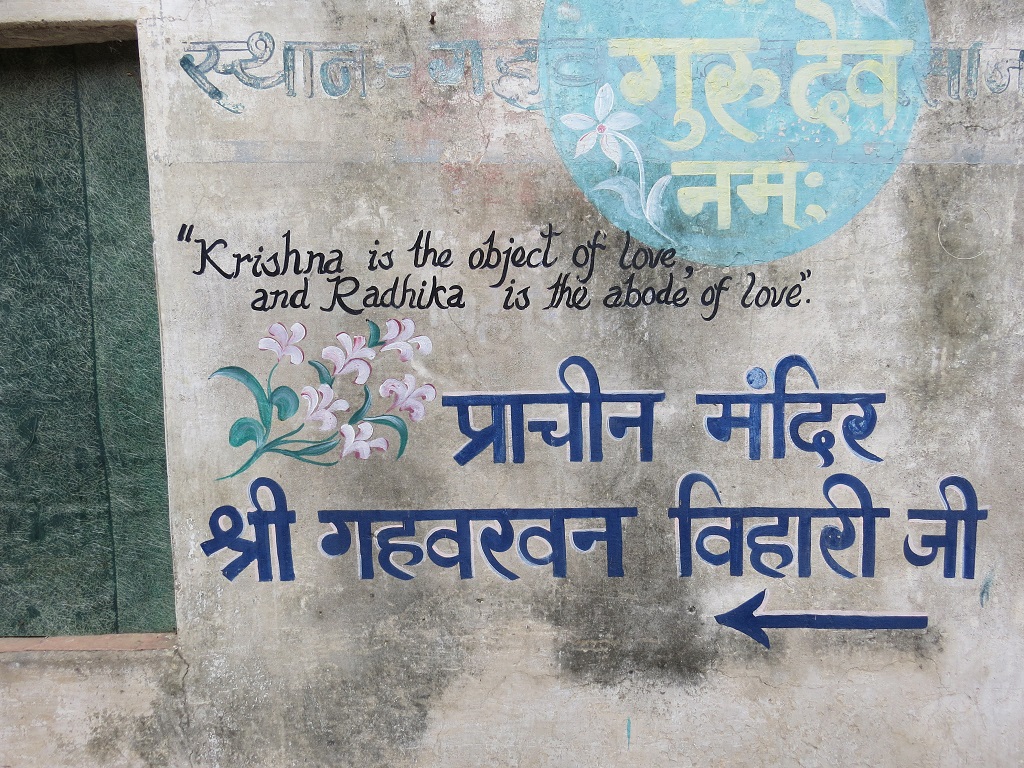 स्थान:-
गुरुदेव
नमः
"Krishna is the object of love,
and Radhika is the abode of love".
प्राचीन मंदिर
श्री गहवरवन विहारी जी